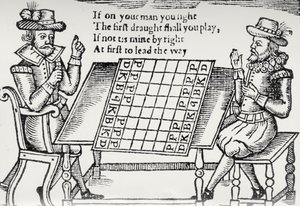 If on your man you light
The first draught ſhall you play,
If not tis mine by right
At first to lead the way